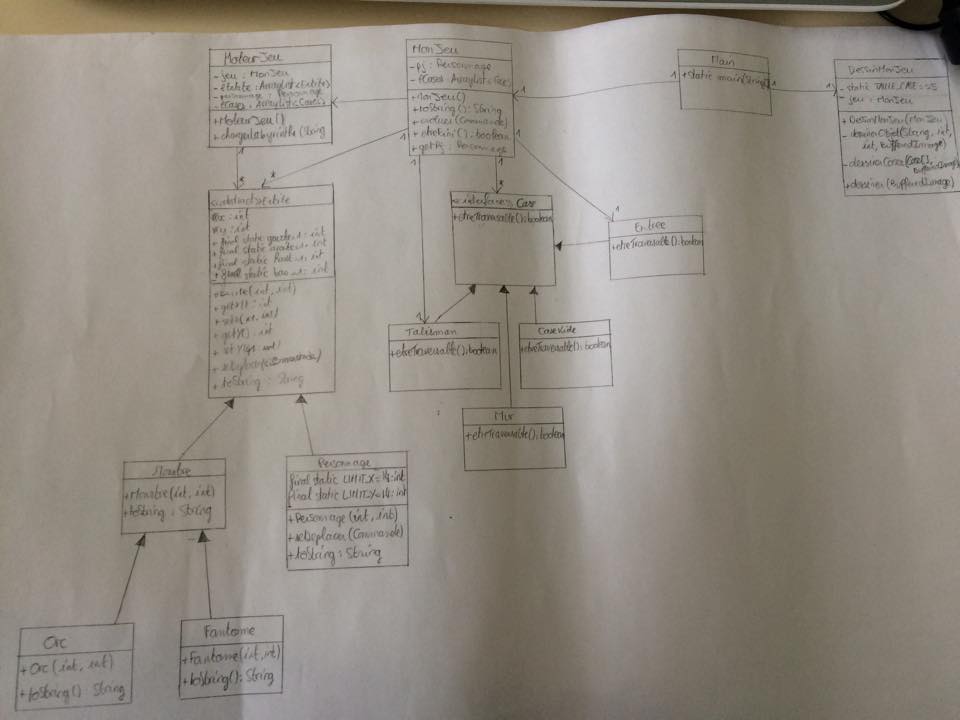 MoteurJeu
- jeu : MonJeu
- Entite : ArrayList<Entite>
- personnage : Personnage
- fCases : ArrayList<Case>
+ MoteurJeu()
+ chargerLabyrinthe (String
1
*
MonJeu
- pj : Personnage
- fCases : ArrayList<Case>
+ monJeu()
+ toString() : String
+ evoluer (Commande)
+ etreFini() : boolean
+ getPj : Personnage
1
1
1
1
1
Main
+ static main(String[])
1
1
1
DessinMonJeu
- static TAILLE_CASE = 25
- jeu : MonJeu
+ DessinMonJeu(MonJeu
- dessinerObjet(String, int,
int, BufferedImage)
- dessinerCase(Case[],
BufferedImage
+ dessiner (BufferedImage)
<<abstract>> Entite
#x : int
#y : int
+ final static gauche : int
+ final static droite : int
+ final static haut : int
+ final static bas : int
(int, int)
+ getX() : int
+ setX(int)
+ getY() : int
+ setY( int)
+ seDeplacer(Commande)
+ toString : String
*
<<interface>> Case
+ etreTraversable() : boolean
1
Entree
+ etreTraversable() : boolean
1
Talisman
+ etreTraversable() : boolean
CaseVide
+ etreTraversable() : boolean
Mur
+ etreTraversable() : boolean
Monstre
+ Monstre(int, int)
+ toString : String
Personnage
final static LIMIT_X = 14 : int
final static LIMIT_Y = 14 : int
+ Personnage (int, int)
+ seDeplacer (Commande)
+ toString : String
Orc
+ Orc (int, int)
+ toString() : String
Fantome
+ Fantome(int, int)
+ toString() : String